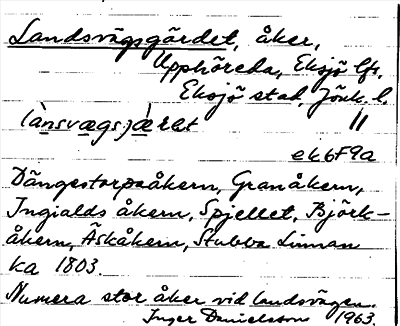 Landsvägsgärdet, åker,
Upphöreda, Eksjö lfs.
Eksjö stad, Jönk. l.
ek6F9a
Dängestorpaåkern, Granåkern,
Ingialds åkern, Spjellet, Björk-
åkern, Äskåkern, Stubba Linnan
ka 1803.
Numera stor åker vid landsvägen.
Inger Danielsson 1963.